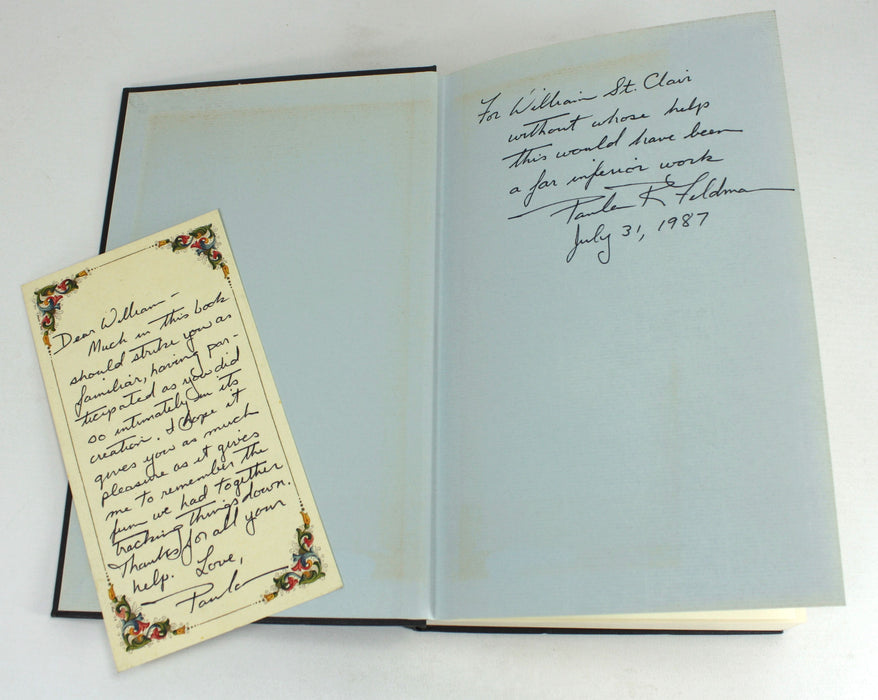 For William St. Clair
without whose help
this would have been
a far inferior work
Paula R. Feldman
July 31, 1987
Dear William –
Much in this book
should strike you as
familiar, having par-
ticipated as you did
so intimately in its
creation. I hope it
gives you as much
pleasure as it gives
me to remember the
fun we had together
tracking things down.
Thanks for all your
help. Love,
Paula